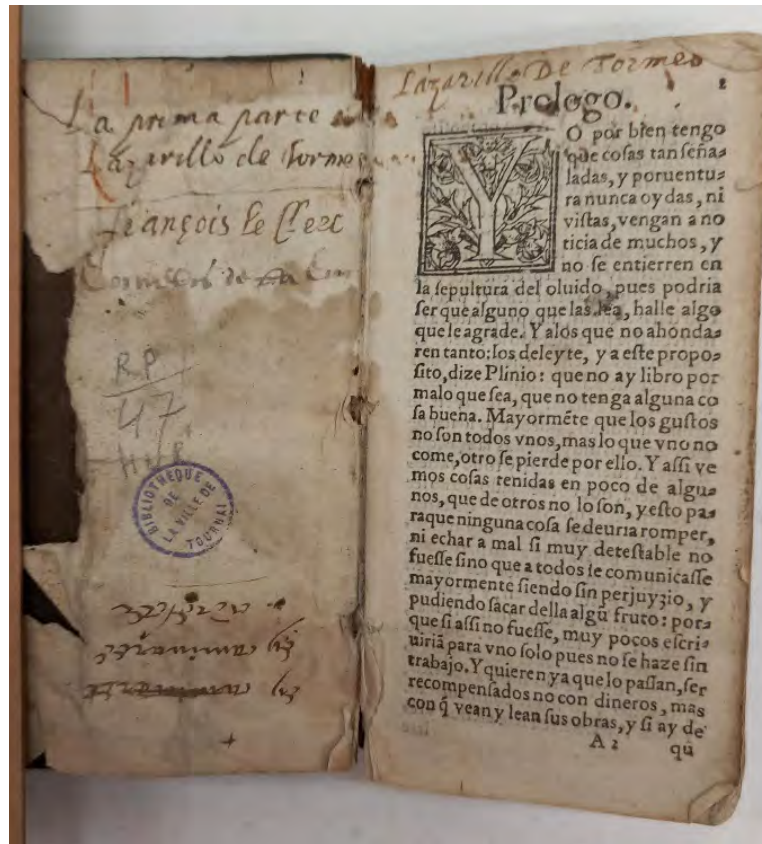 La prima parte
Lazarillo de torme
François le Clerc
RP
47
BIBLIOTHEQUE DE LA VILLE DE TOURNAI
Lazarillo De Tormes
2
Prologo.
YO por bien tengo
que cosas tan seña-
ladas, y poruentu-
ra nunca oydas, ni
vistas, vengan a no
ticia de muchos, y
no se entierren en
la sepultura del oluido, pues podria
ser que alguno que las lea, halle algo
que le agrade. Y alos que no ahonda-
ren tanto: los deleyte, y a este propo-
sito, dize Plinio: que no ay libro por
malo que sea, que no tenga alguna co
sa buena. Mayormẽte que los gustos
no son todos vnos, mas lo que vno no
come, otro se pierde por ello. Y assi ve
mos cosas tenidas en poco de algu-
nos, que de otros no lo son, y esto pa-
raque ninguna cosa se deuria romper,
ni echar a mal si muy detestable no
fuesse sino que a todos se comunicasse
mayormente siendo sin perjuyzio, y
pudiendo sacar della algũ fruto: por-
que si assi no fuesse, muy pocos escri-
uiriã para vno solo pues no se haze sin
trabajo. Y quieren ya que lo passan, ser
recompensados no con dineros, mas
con q̃ vean y lean sus obras, y si ay de
A 2
qũ